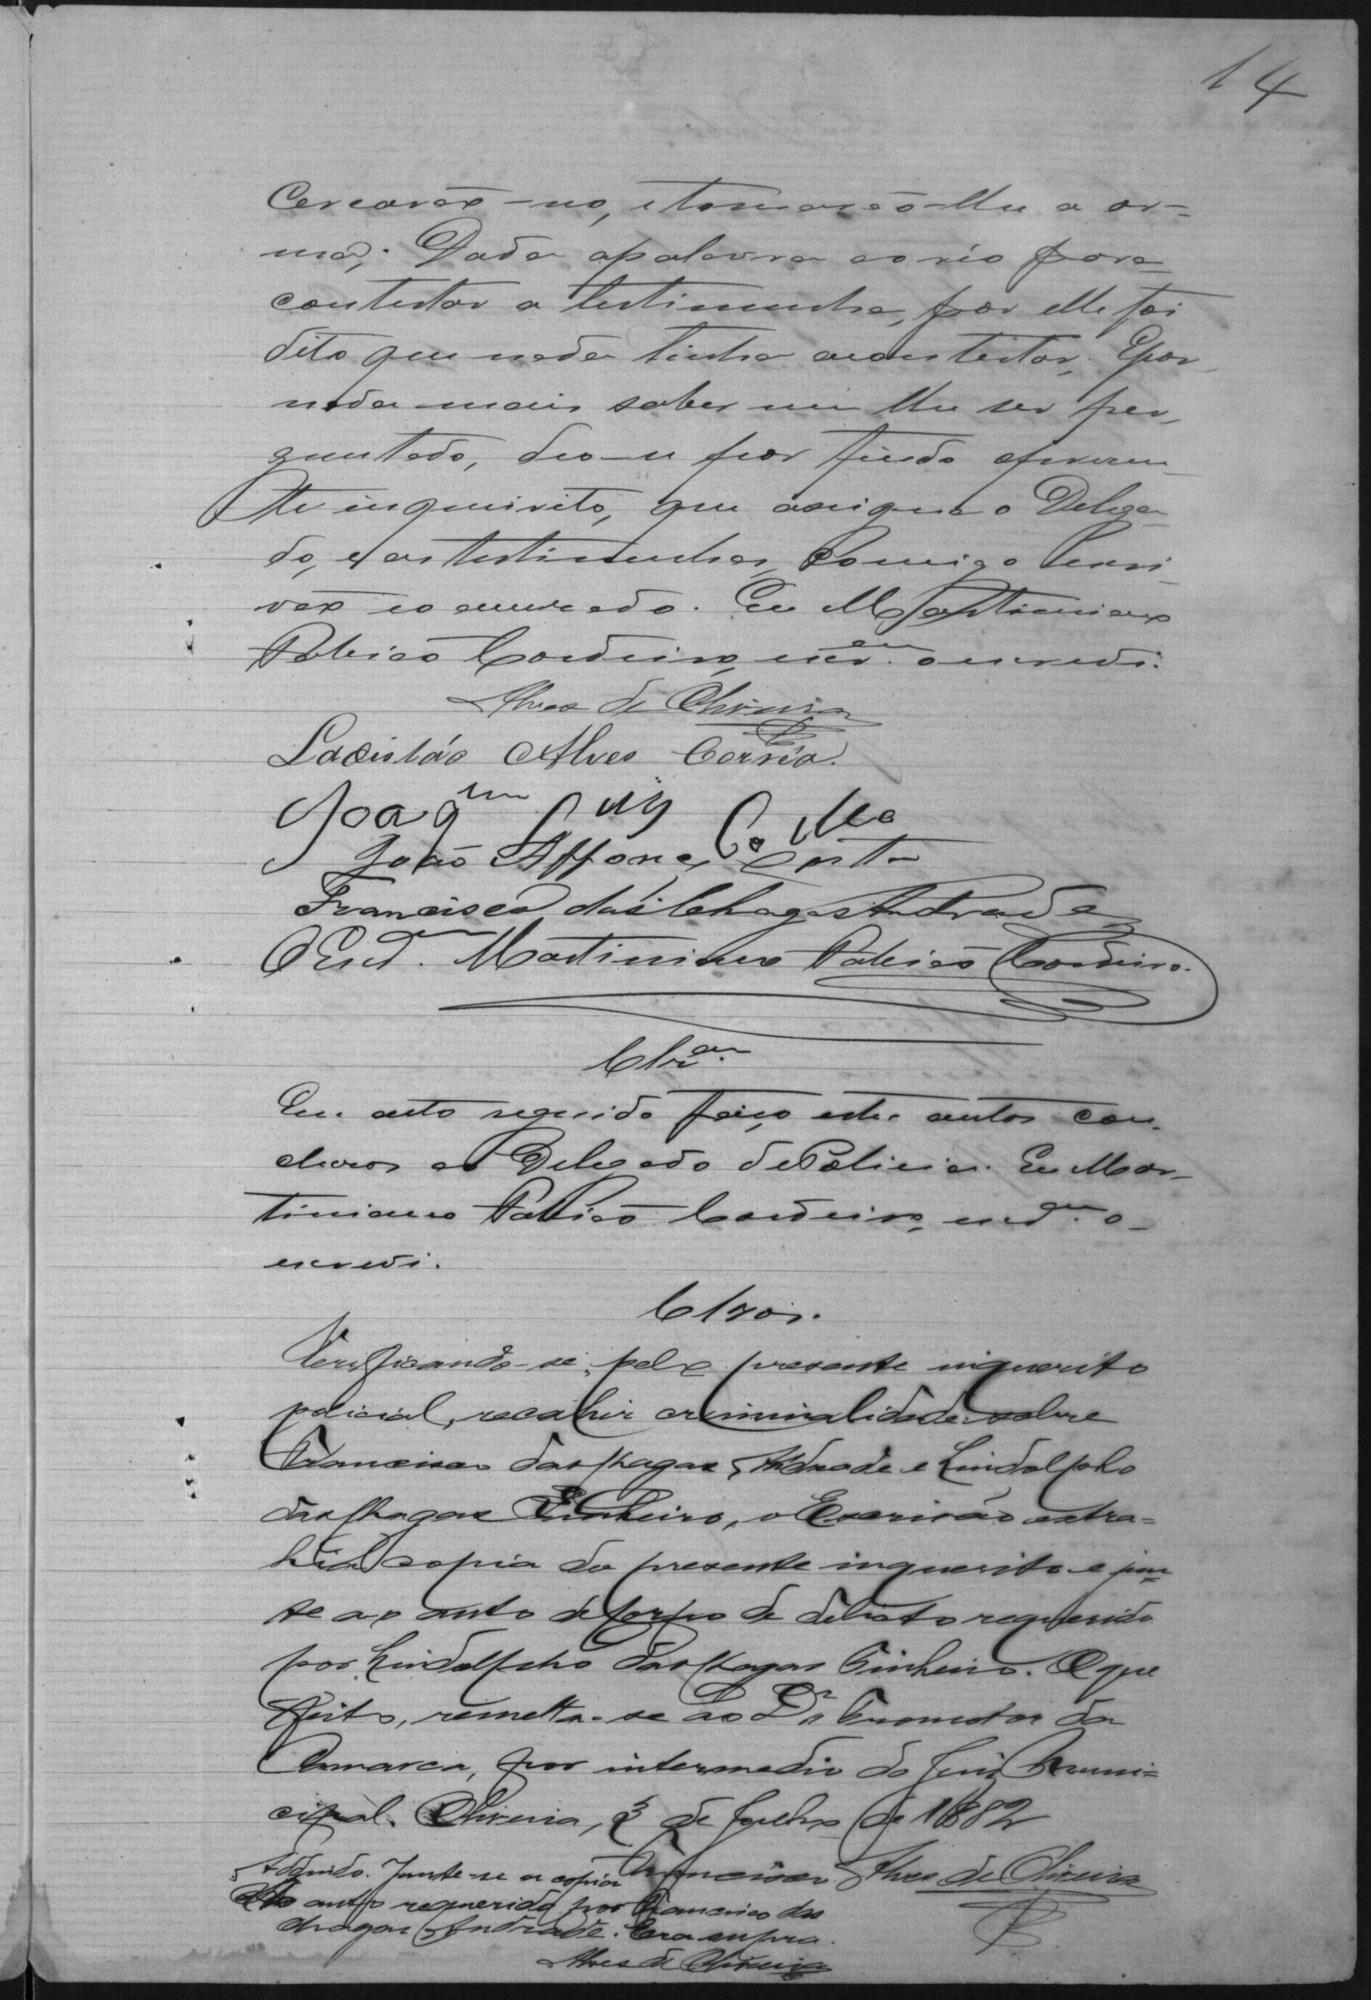 14
Cercarão-no, e tomarão-lhe a ar-
ma; Dada apalavra ao réo para
contestar a testimunha, por elle foi
dito que nada tinha acontestar. Epor
nada mais saber nem lhe ser per-
guntado, deo-se por findo opresen-
te inquerito, que assigna o Delega-
do, e as testimunhas, Comigo Escri-
vão
Patricio Cordeiro, escr.am o escrevi.
Alves de Oliveira
Ladisláo Alves Corrêa.
Joaqm Luis
João Affonso Costa
Francisco das Chagas Andrade
O Escr.am Martiniano Patricio Cordeiro.
Clz.am
Em acto seguido faço estes autos con-
clusos ao Delegado de Policia. Eu Mar-
tiniano Patricio Cordeiro, escr.am o
escrevi.
Clzos.
Verificando-se, pelo presente inquerito
policial, recahir criminalidade sobre
Francisco das Chagas Andrade e Lindolpho
das Chagas Pinheiro, o Escrivão extra-
hia copia do presente inquerito e jun-
te ao auto de Corpo de delicto requerido
por Lindolpho das Chagas Pinheiro. O que
feito, remetta-se ao Dr Promotor da
Comarca, por intermedio do Juiz Muni-
cipal. Oliveira, 3 de Julho de 1882
Francisco Alves de Oliveira
Addindo. Junte-se a copia
ao auto requerido por Francisco das
Chagas Andrade. Era supra.
Alves de Oliveira